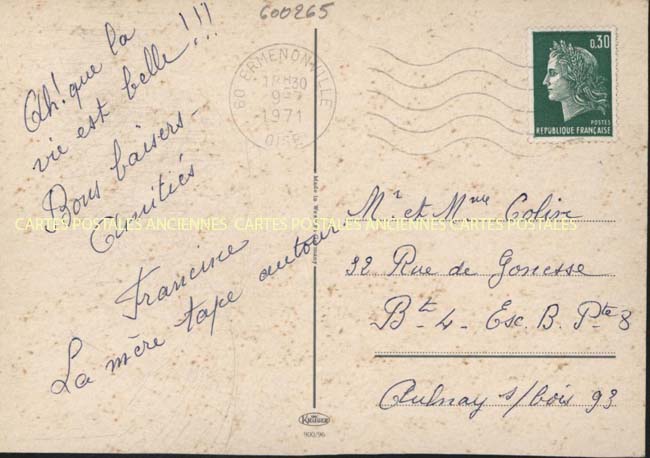 600265
Ah! que la
vie est belle!!!
Bons baisers -
Amitiés
Francine
La mère tape autour
60 ERMENONVILLE
9-7
1971
OISE
0,30
POSTES
REPUBLIQUE FRANÇAISE
CARTES POSTALES ANCIENNES CARTES POSTALES ANCIENNES CARTES POSTALES
Mr et Mme Colin
32 Rue de Gonesse
Bt- 4- Esc. B. Pte 8
Aulnay s/bois 93
KRÜGER
900/96